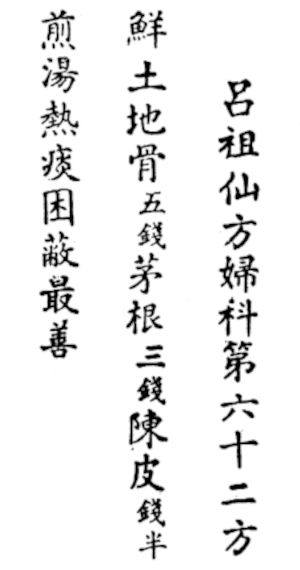 呂祖仙方婦科第六十二方
鮮土地骨五錢茅根三錢陳皮錢半
煎湯熱痰困蔽最善